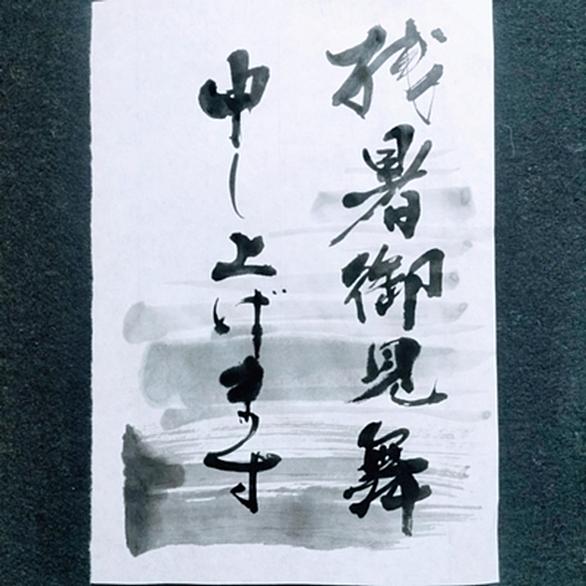 残暑御見舞
申し上げます